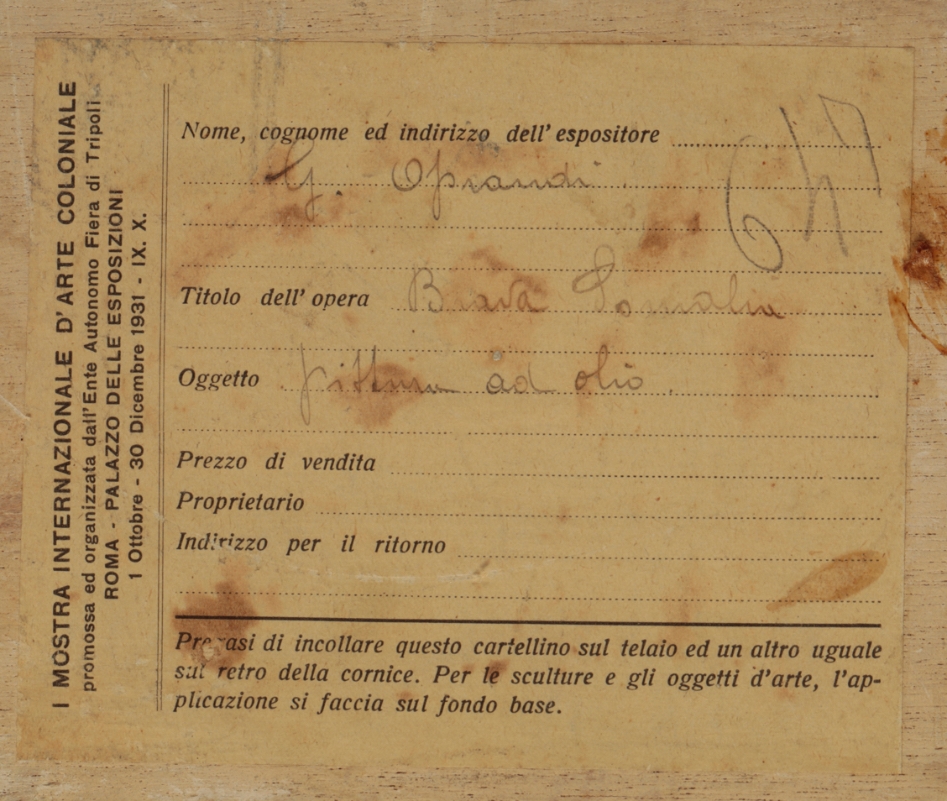 I MOSTRA INTERNAZIONALE D'ARTE COLONIALE
promossa ed organizzata dall'Ente Autonomo Fiera di Tripoli
ROMA - PALAZZO DELLE ESPOSIZIONI
1 Ottobre - 30 Dicembre 1931 - IX. X.
Nome, cognome ed indirizzo dell'espositore
G. Oprandi
647
Titolo dell'opera Brava Somalia
Oggetto pittura ad olio.
Prezzo di vendita
Proprietario
Indirizzo per il ritorno
Pregasi di incollare questo cartellino sul telaio ed un altro uguale
sul retro della cornice. Per le sculture e gli oggetti d'arte, l'ap-
plicazione si faccia sul fondo base.